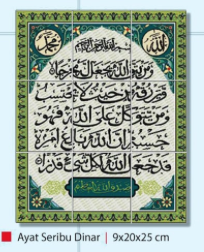 الله
محمد
بسم الله الرحمن الرحيم
ومن يتق الله يجعل له مخرجا
ويرزقه من حيث لا يحتسب
ومن يتوكل على الله فهو
حسبه إن الله بالغ أمره
قد جعل الله لكل شيء قدرا
Ayat Seribu Dinar | 9x20x25 cm